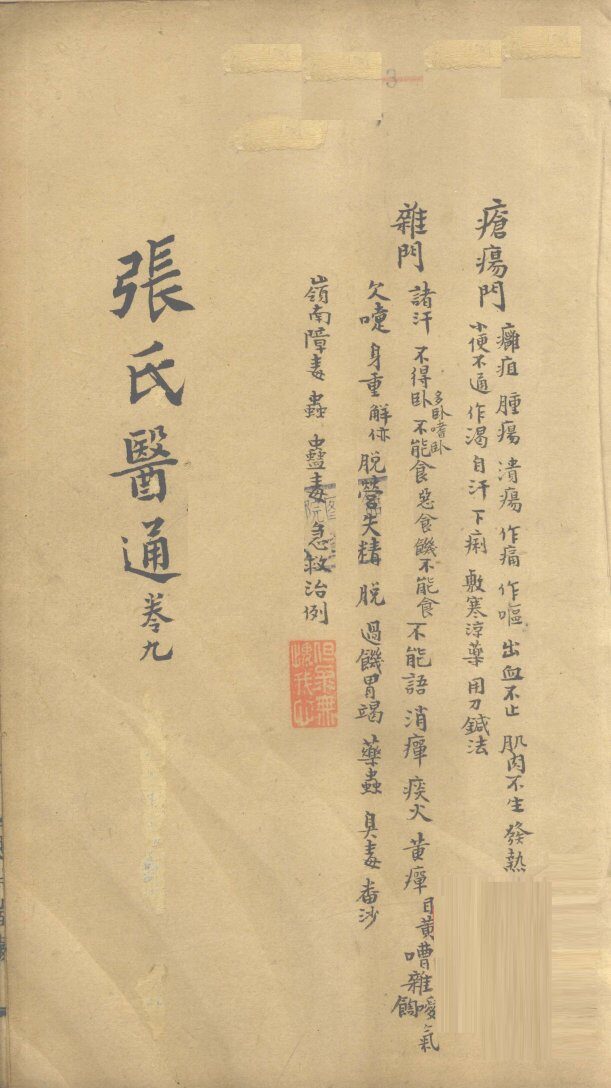 瘡瘍門 癰疽 腫瘍 潰瘍 作痛 作嘔 出血不止 肌肉不生 發熱
小便不通 作渴 自汗 下痢 敷寒涼藥 用刀鍼法
雜門 諸汗 不得卧 多卧嗜卧 不能食 惡食 饑不能食 不能語 消癉 痰火 黃癉 目黃 嘈雜 噯氣
欠嚏 身重 解㑊 脫營失精 脫 過饑胃竭 藥蟲 臭毒 番沙
嶺南障毒 蟲 蠱毒 急救治例
張氏醫通 卷九
3